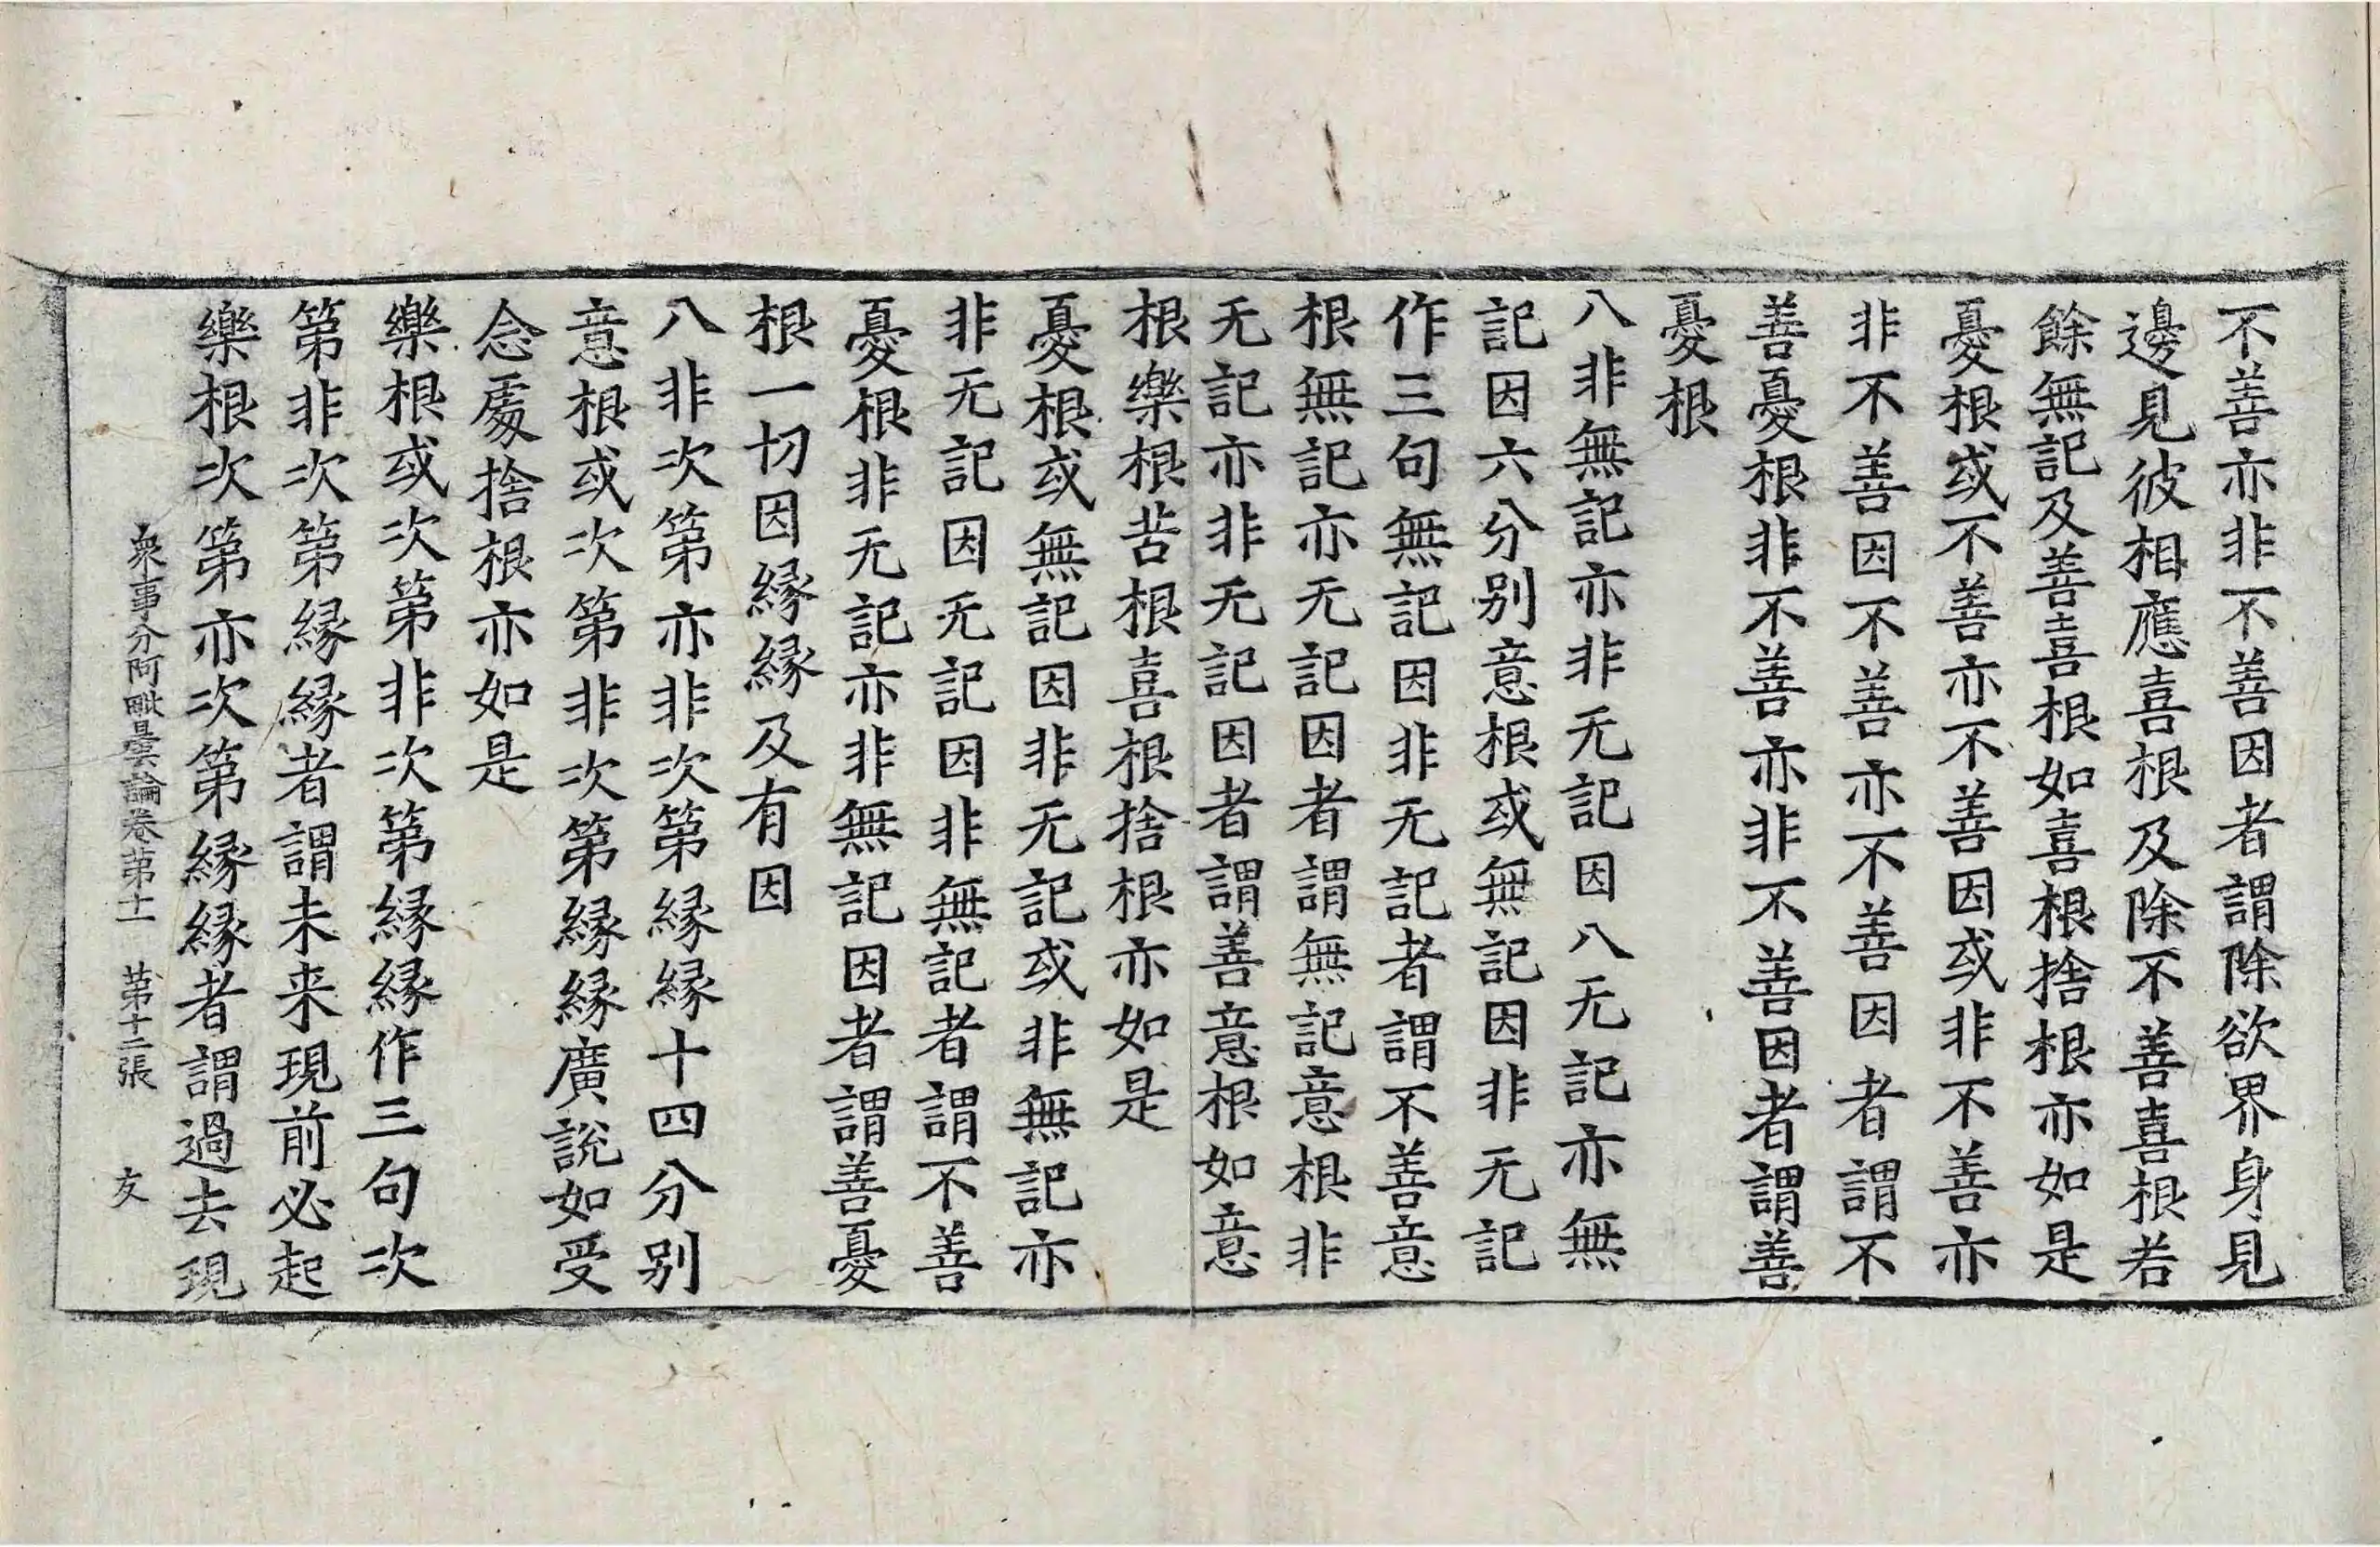 不善亦非不善因者謂除欲界身見
邊見彼相應喜根及除不善喜根若
餘無記及善喜根如喜根捨根亦如是
憂根或不善亦不善因或非不善亦
非不善因不善亦不善因者謂不
善憂根非不善亦非不善因者謂善
憂根
八非無記亦非无記因八无記亦無
記因六分別意根或無記因非无記
作三句無記因非无記者謂不善意
根無記亦无記因者謂無記意根非
无記亦非无記因者謂善意根如意
根樂根苦根喜根捨根亦如是
憂根或無記因非无記或非無記亦
非无記因无記因非無記者謂不善
憂根非无記亦非無記因者謂善憂
根一切因縁縁及有因
八非次第亦非次第縁縁十四分別
意根或次第非次第縁縁廣說如受
念處捨根亦如是
樂根或次第非次第縁縁作三句次
第非次第縁縁者謂未来現前必起
樂根次第亦次第縁縁者謂過去現
衆事分阿毗曇論卷第十一 第十二張 友